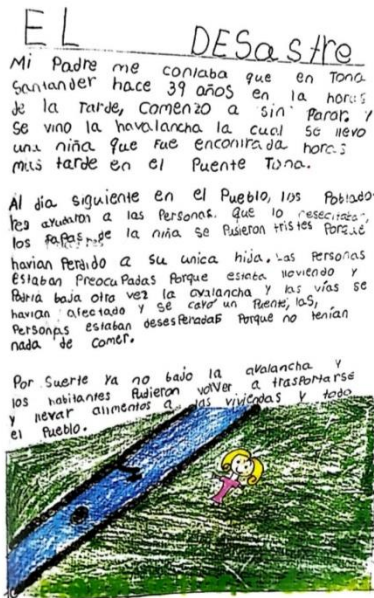 EL DESastre
Mi Padre me contaba que en Tona
Santander hace 39 años en la horas
de la tarde, comenzo a sin Parar, Y
Se vino la havalancha la cual se llevo
una niña que fue encontrada horas
mas tarde en el Puente Tona.
Al dia siguiente en el Pueblo, los Poblado
res ayudaron a las Personas. que lo resecitaba,
los PaPas de la niña se Pusieron tristes Porque
havian Perdido a su unica hija. Las Personas
estaban PreocuPadas Porque estaba lloviendo y
Podria baja otra vez la avalancha y las vias se
havian afectado y se cayo un Puente, las,
Personas estaban desesPeradas Porque no tenian
nada de comer.
Por Suerte Ya no bajo la avalancha y
los habitantes Pudieron volver a trasPortarse
y llevar alimentos a las viviendas y todo
el Pueblo.